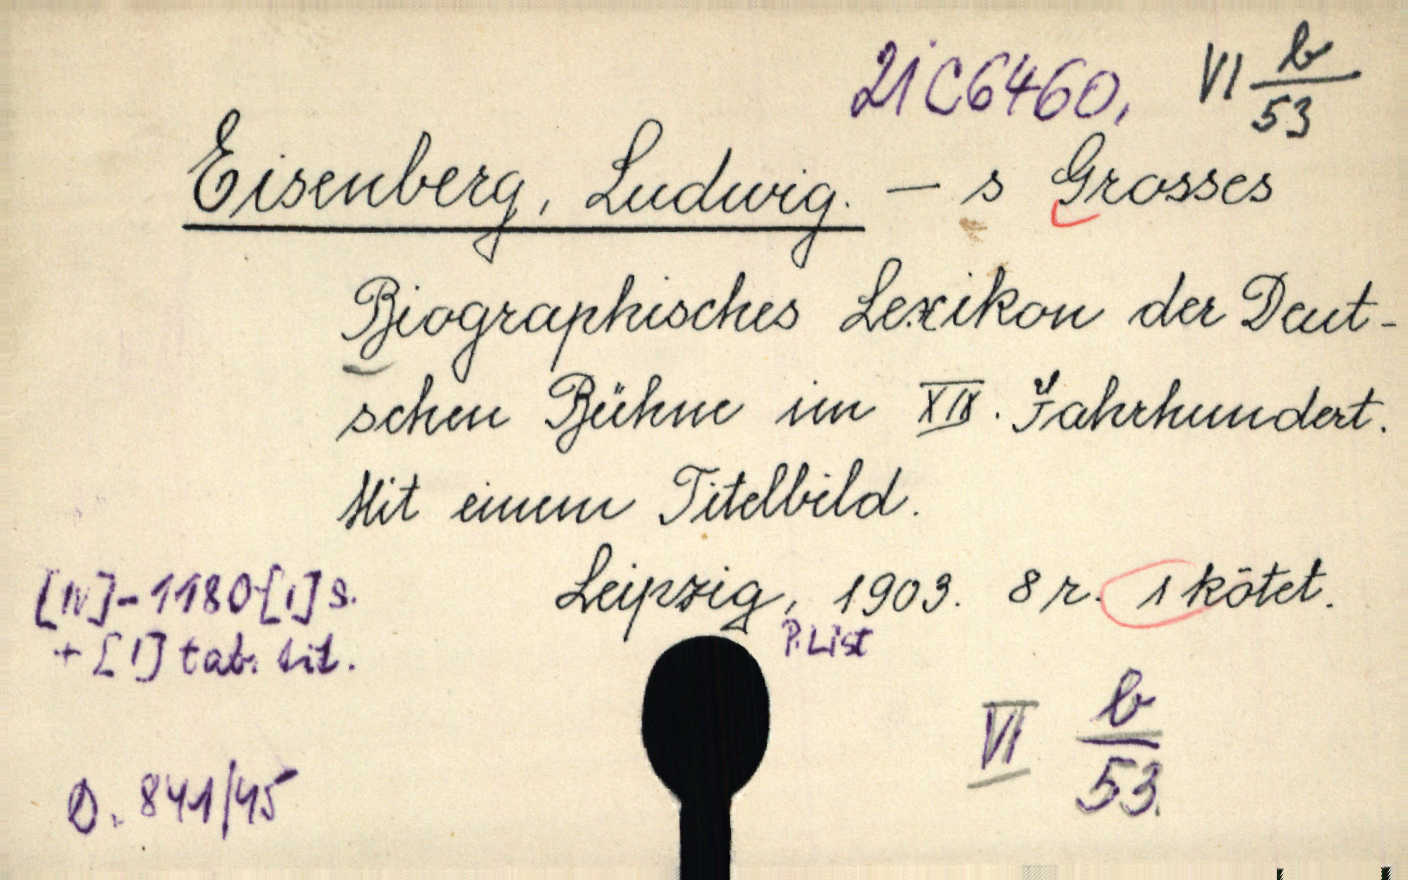 21C6460, VI b/53
Eisenberg, Ludwig. — s Grosses
Biographisches Lexikon der Deut-
schen Bühne im XIX. Jahrhundert.
Mit einem Titelbild.
Leipzig, 1903. 8 r. 1 kötet.
P. List
[IV]-1180-[1] s.
+ [1] tab. tit.
VI b/53.
D. 841/45